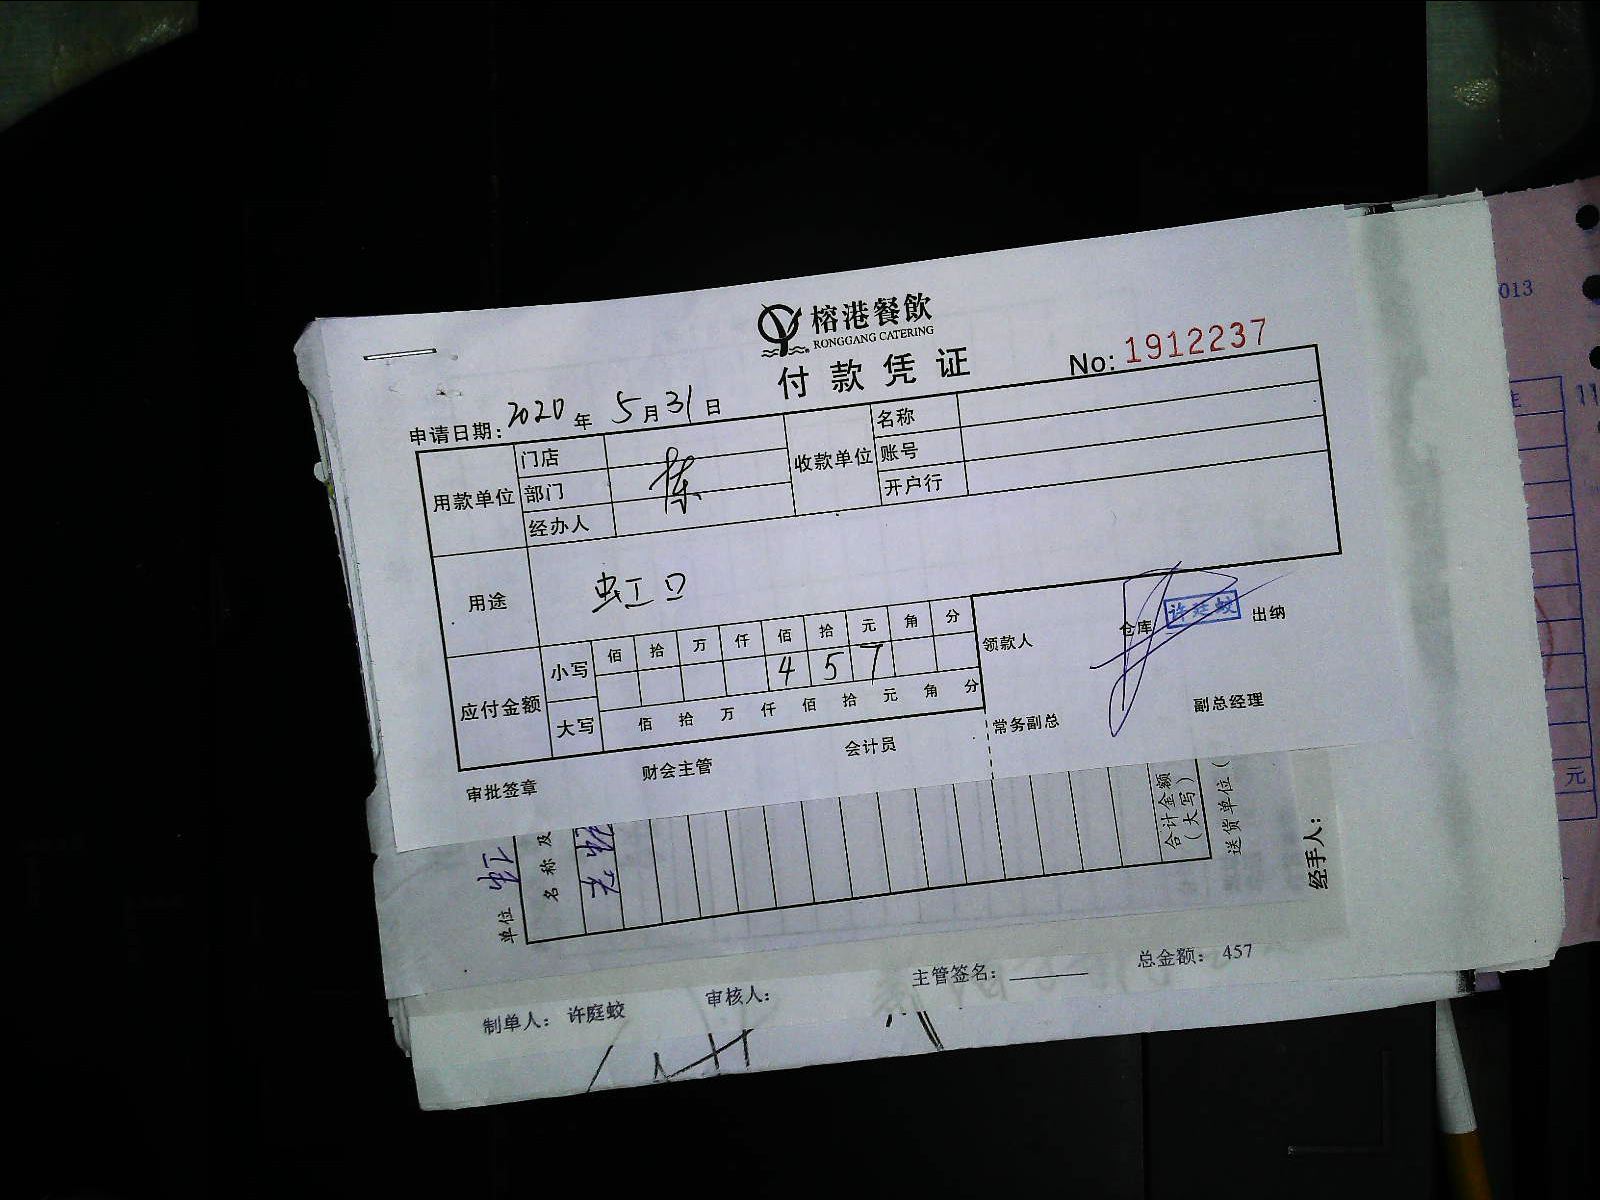 榕港餐飲
RONGGANG CATERING
付款凭证
No: 1912237
申请日期: 2020 年 5 月 31 日
用款单位 门店 收款单位 名称
部门 陈 账号
经办人 开户行
用途 虹口
应付金额 小写 佰 拾 万 仟 佰 拾 元 角 分
4 5 7
大写 佰 拾 万 仟 佰 拾 元 角 分
领款人 仓库 许廷蛟 出纳
常务副总 副总经理
审批签章 财会主管 会计员
单位 虹
名称及
合计金额
(大写)
送货单位(
经手人:
制单人: 许庭蛟 审核人: 主管签名: 总金额: 457
013
元